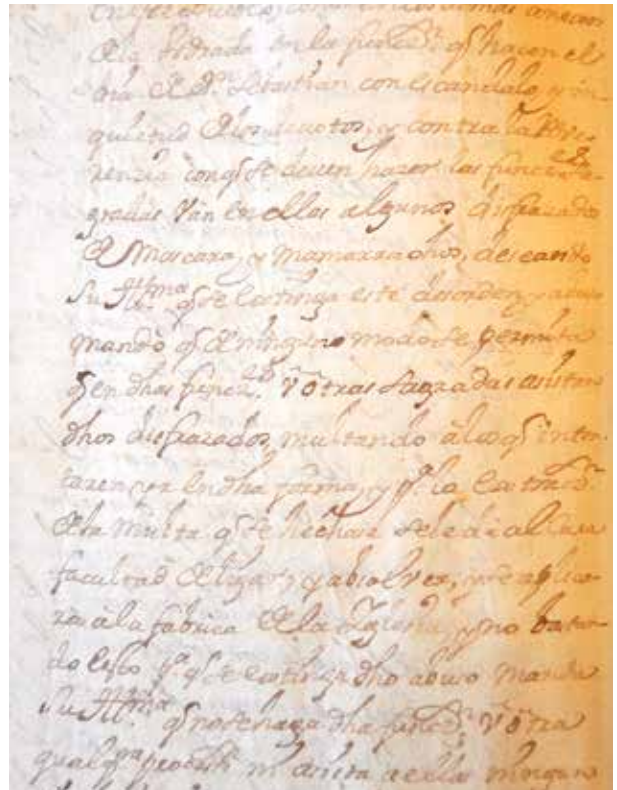 de la entrada en la funcⁿ. q̃ hacen el
dia de Sⁿ. Sebastian con escandalo, y in-
quietud de los devotos, y contra la Reve-
rencia con q̃ se deven hazer las funciones Sa-
gradas van en ellas algunos disfrazados
de Mascara, y mamarrachos, deseando
Su Illma. q̃ se extinga este desorden, y abuso
mando q̃ de ninguno modo se permita
q̃ en dhas funcⁿᵉˢ. v otras sagradas asistan
dhos disfrazados, multando à los q̃ inten-
taren ir en dha forma, y pᵃ. la
de la multa q̃ se hechare se le da al Cura
facultad de ligar, y absolver, y se aplica-
rà à la fabrica de la Iglesia, y no bastan-
do esto pᵃ. q̃ se extinga dho abuso manda
Su Illma. q̃ no se haga dha funcⁿ. v otra
ni asista a ellas ninguno